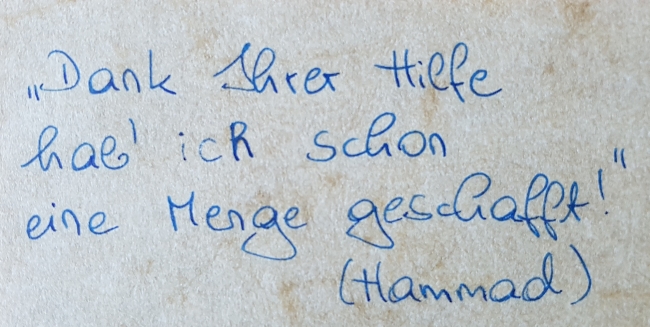 „Dank Ihrer Hilfe
hab' ich schon
eine Menge geschafft!"
(Hammad)